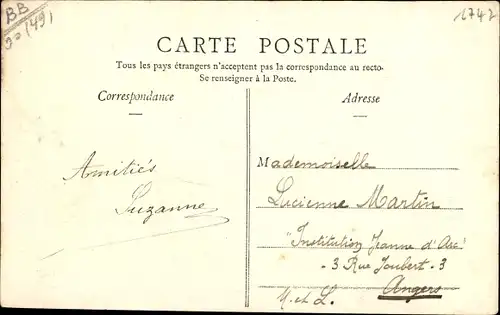 BB
1742
CARTE POSTALE
Tous les pays étrangers n'acceptent pas la correspondance au recto-
Se renseigner à la Poste.
Correspondance
Adresse
Amitiés
Suzanne
Mademoiselle
Lucienne Martin
"Institution Jeanne d'Arc"
- 3 Rue Joubert - 3
Angers
M. et L.